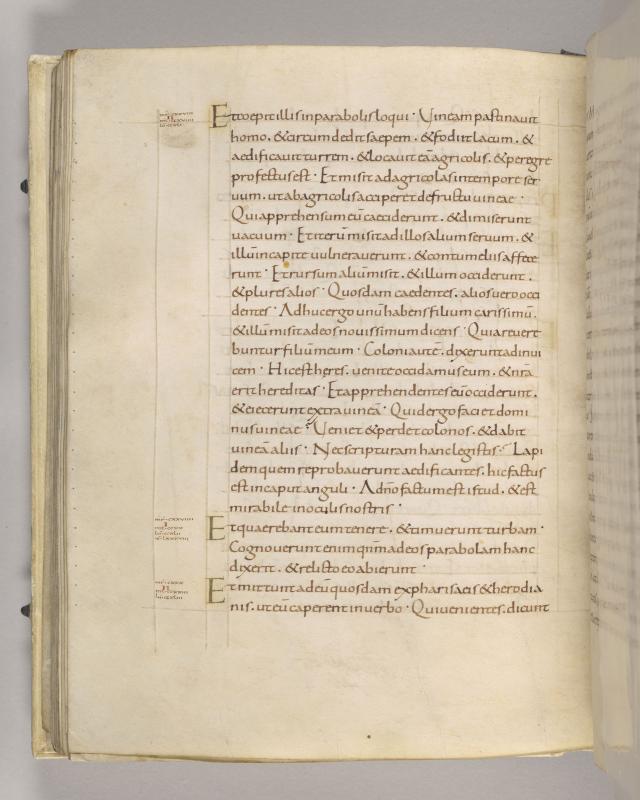 Et coepit illis in parabolis loqui · Vineam pastinavit
homo . & circumdedit saepem . & fodiit lacum . &
aedificavit turrem . & locavit eā agricolis . & peregre
profectus est · Et misit ad agricolas in tempore ser
vum . ut ab agricolis acciperet de fructu vineae ·
Qui apprehensum eū caeciderunt . & dimiserunt
vacuum · Et iterū misit ad illos alium servum . &
illū in capite vulneraverunt . & contumeliis affece
runt · Et rursum aliū misit . & illum occiderunt .
& plures alios · Quosdam caedentes . alios vero occi
dentes · Adhuc ergo unū habens filium carissimū .
& illū misit ad eos novissimum dicens · Quia revere
buntur filiū meum · Coloni autē . dixerunt ad invi
cem · Hic est heres . venite occidamus eum . & nrā
erit hereditas · Et apprehendentes eū occiderunt .
& eiecerunt extra vineā · Quid ergo faciet domi
nus vineae · Veniet & perdet colonos . & dabit
vineā aliis · Nec scripturam hanc legistis · Lapi
dem quem reprobaverunt aedificantes . hic factus
est in caput anguli · A dn̄o factum est istud . & est
mirabile in oculis nostris ·
Et quaerebant eum tenere . & timuerunt turbam ·
Cognoverunt enim qnm ad eos parabolam hanc
dixerit . & relicto eo abierunt ·
Et mittunt ad eū quosdam ex pharisaeis & herodia
nis . ut eū caperent in verbo · Qui venientes . dicunt